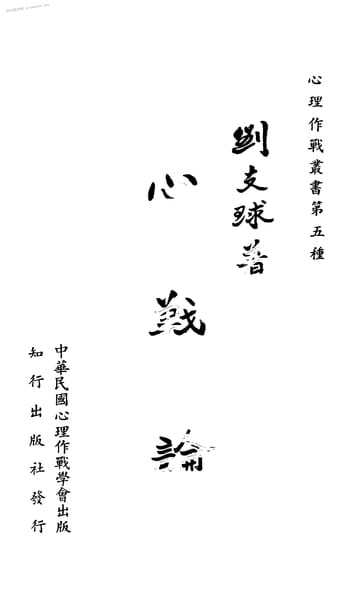 心理作戰叢書第五種
劉支球著
心戰論
中華民國心理作戰學會出版
知行出版社發行